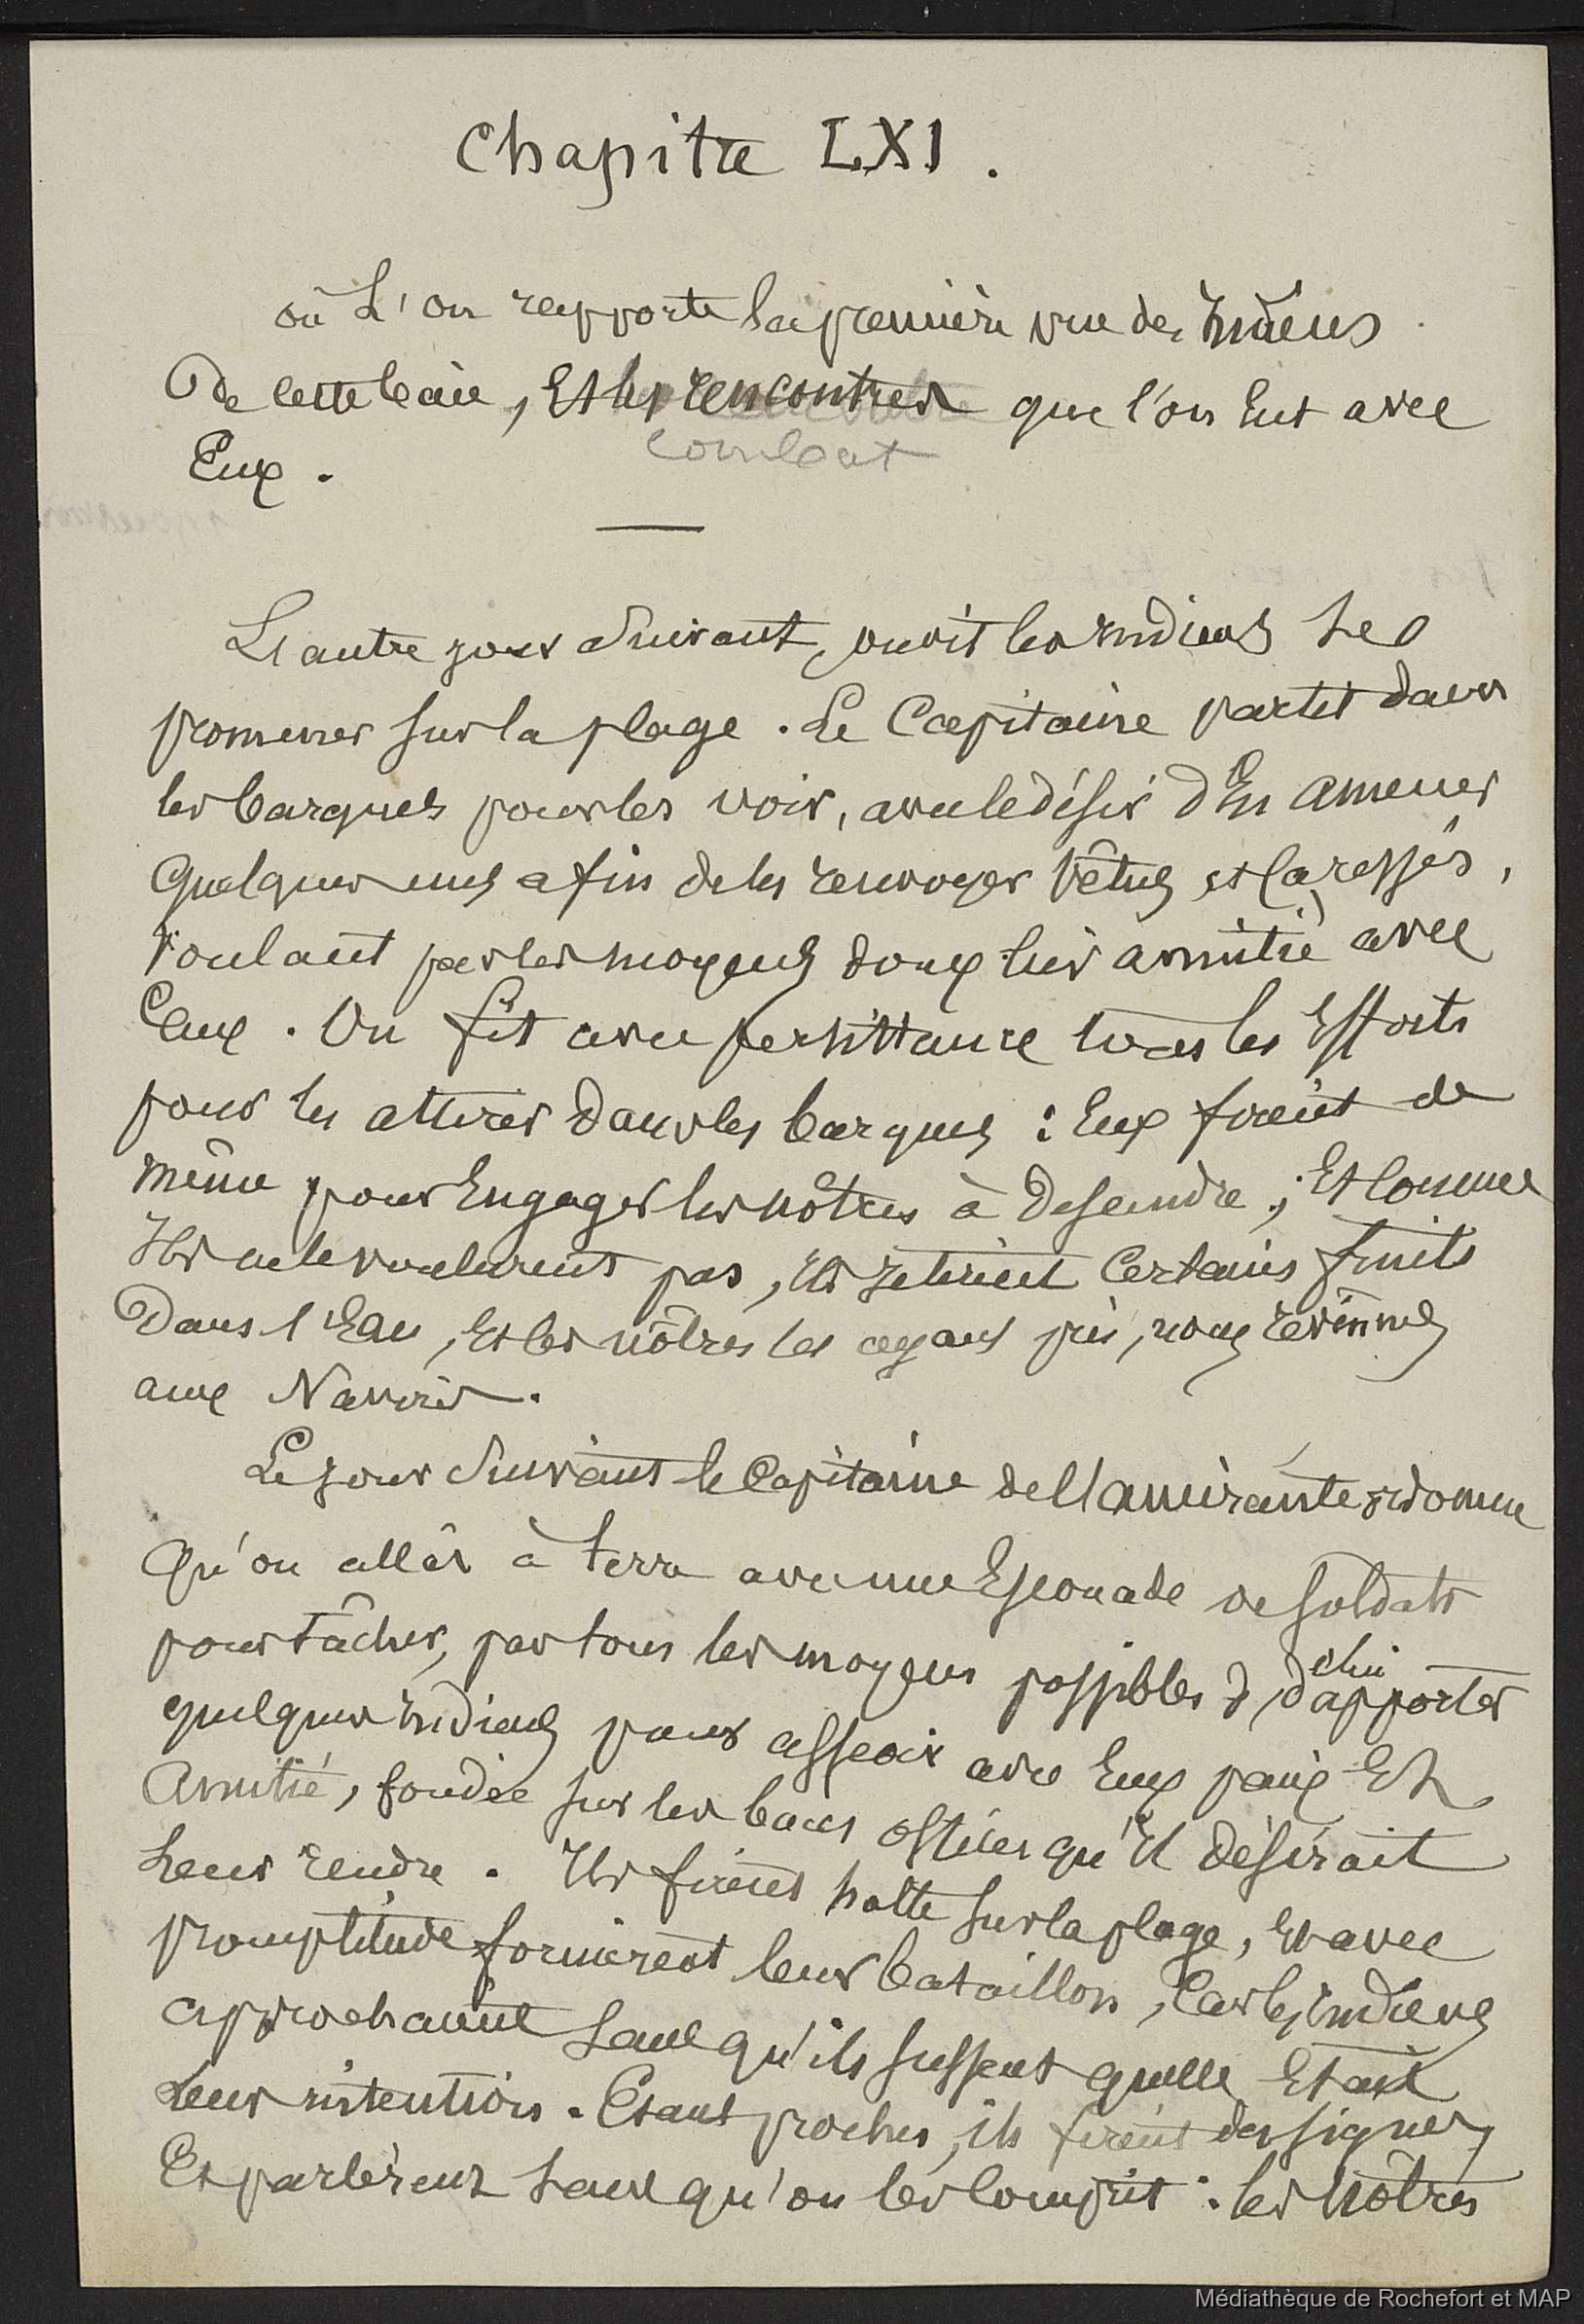 Chapitre LXI.
où L'on rapporte la première vue des Indiens
De cette baie, Et les rencontres que l'on Eut avec
combat
Eux.
L'autre jour suivant, on vit les Indiens se
promener sur la plage. Le Capitaine partit dans
les barques pour les voir, avec le désir d'En amener
Quelques uns afin de les renvoyer vêtus et caressés,
voulant par les moyens doux lier amitié avec
Eux. On fit avec persistance tous les Efforts
pour les attirer dans les barques : Eux firent de
même pour Engager les nôtres à descendre ; Et comme
Ils ne le voulurent pas, Ils jetèrent certains fruits
Dans l'Eau, Et les nôtres les ayant pris, nous revînmes
aux Navires.
Le jour suivant le Capitaine de l'amirante ordonna
Qu'on allât à terre avec une Escouade de soldats
pour tâcher, par tous les moyens possibles d'apporter
chui
quelques Indiens pour asseoir avec Eux paix Et
Amitié, fondée sur les bons offices qu'Il désirait
Leur rendre. Ils firent halte sur la plage, Et avec
promptitude formèrent leur bataillon, Car les Indiens
approchaient sans qu'ils sussent quelle Etait
Leur intention. Etant proches, ils firent des signes,
Et parlèrent sans qu'on les comprit : les nôtres
Médiathèque de Rochefort et MAP